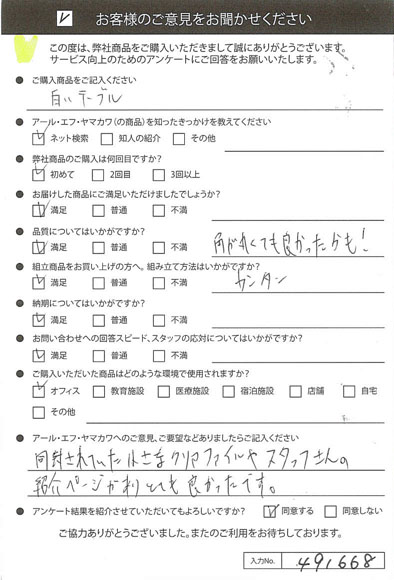 ✓ お客様のご意見をお聞かせください
この度は、弊社商品をご購入いただきまして誠にありがとうございます。
サービス向上のためのアンケートにご回答をお願いいたします。
● ご購入商品をご記入ください
白いテーブル
● アール・エフ・ヤマカワ(の商品)を知ったきっかけを教えてください
☑ ネット検索 □ 知人の紹介 □ その他
● 弊社商品のご購入は何回目ですか?
☑ 初めて □ 2回目 □ 3回以上
● お届けした商品にご満足いただけましたでしょうか?
☑ 満足 □ 普通 □ 不満
● 品質についてはいかがですか?
☑ 満足 □ 普通 □ 不満 角が丸くても良かったかも!
● 組立商品をお買い上げの方へ。組み立て方法はいかがですか?
☑ 満足 □ 普通 □ 不満 カンタン
● 納期についてはいかがですか?
☑ 満足 □ 普通 □ 不満
● お問い合わせへの回答スピード、スタッフの応対についてはいかがですか?
☑ 満足 □ 普通 □ 不満
● ご購入いただいた商品はどのような環境で使用されますか?
☑ オフィス □ 教育施設 □ 医療施設 □ 宿泊施設 □ 店舗 □ 自宅
□ その他
● アール・エフ・ヤマカワへのご意見、ご要望などありましたらご記入ください
同封されていた小さなクリアファイルやスタッフさんの
紹介ページがありとても良かったです。
● アンケート結果を紹介させていただいてもよろしいですか? ☑ 同意する □ 同意しない
ご協力ありがとうございました。またのご利用をお待ちしております。
入力No. 491668